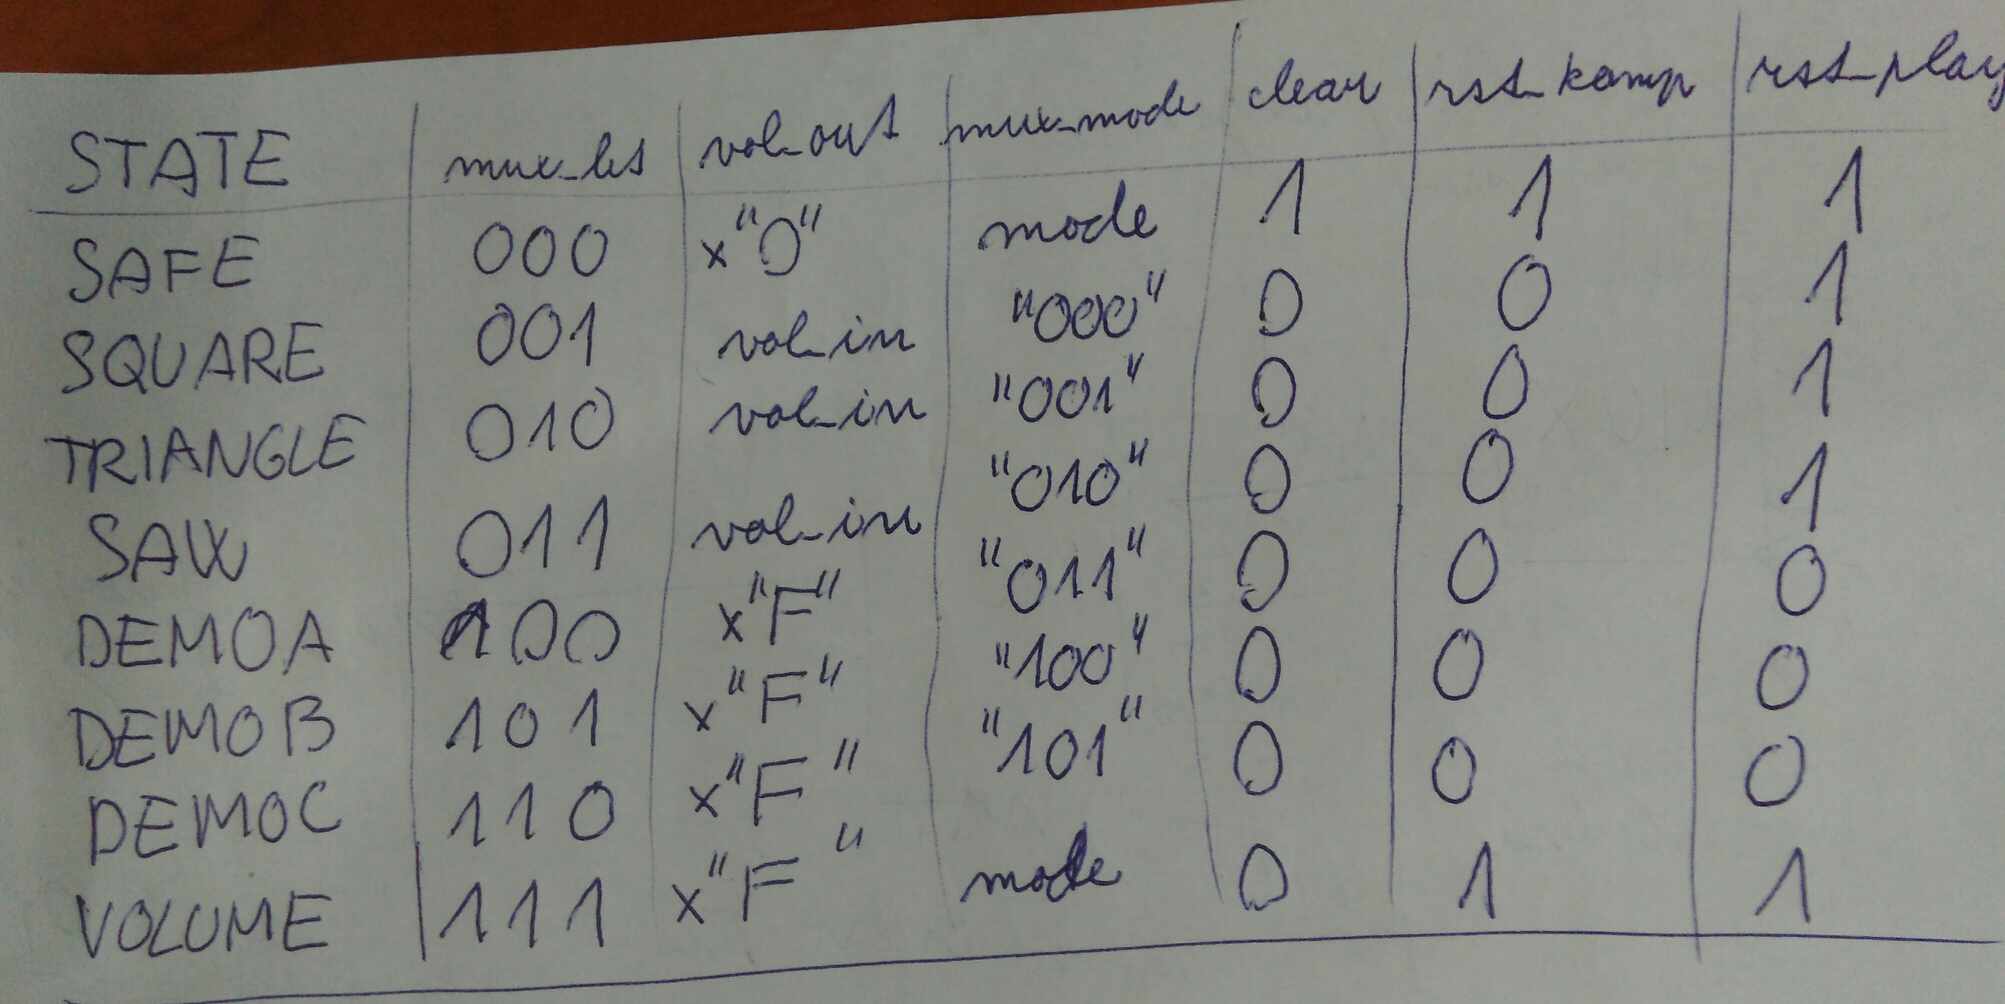 STATE mux_ls vol_out mux_mode clear rst_komp rst_play
SAFE 000 x"0" mode 1 1 1
SQUARE 001 vol_in "000" 0 0 1
TRIANGLE 010 vol_in "001" 0 0 1
SAW 011 vol_in "010" 0 0 1
DEMOA 100 x"F" "011" 0 0 0
DEMOB 101 x"F" "100" 0 0 0
DEMOC 110 x"F" "101" 0 0 0
VOLUME 111 x"F" mode 0 1 1